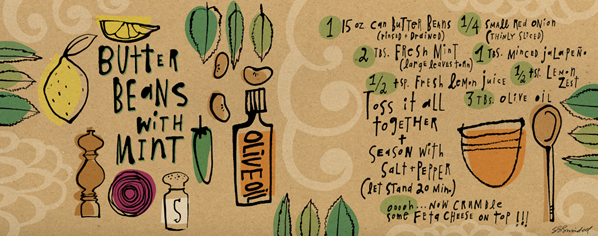 BUTTER
BEANS
WITH
MINT
OLIVE OIL
S
1 15 oz can Butter Beans
(rinsed + drained)
1/4 small red onion
(thinly sliced)
2 TBS. Fresh Mint
(large leaves torn)
1 TBS. minced jalapeño
1/2 tsp. fresh lemon juice
1/2 tsp. Lemon
Zest
3 TBS olive oil
Toss it all
together
+
Season with
Salt + Pepper
(let stand 20 min.)
ooooh...now crumble
some feta cheese on top !!!